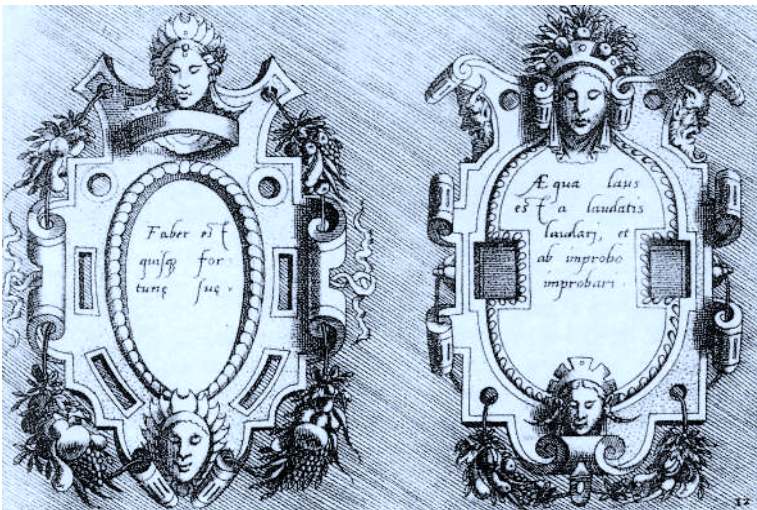 Faber est
quisq̧ for
tunę suę.
Æqua laus
est a laudatis
laudarj, et
ab improbo
improbari.
12